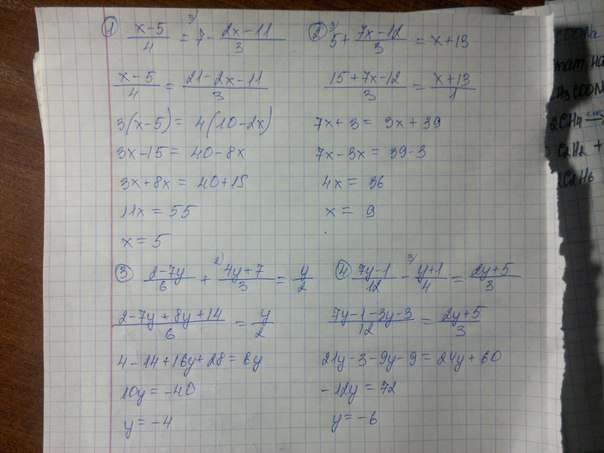 ① (x-5)/4 = ³⁾7 - (2x-11)/3
(x-5)/4 = (21-2x-11)/3
3(x-5) = 4(10-2x)
3x-15 = 40-8x
3x+8x = 40+15
11x = 55
x = 5
② ³⁾5 + (7x-12)/3 = x+13
(15+7x-12)/3 = (x+13)/1
7x+3 = 3x+39
7x-3x = 39-3
4x = 36
x = 9
③ (2-7y)/6 + ²⁾(4y+7)/3 = y/2
(2-7y+8y+14)/6 = y/2
4-14+16y+28 = 6y
10y = -40
y = -4
④ (7y-1)/12 - ³⁾(y+1)/4 = (2y+5)/3
(7y-1-3y-3)/12 = (2y+5)/3
21y-3-9y-9 = 24y+60
-12y = 72
y = -6
2CH4
C2H2 +